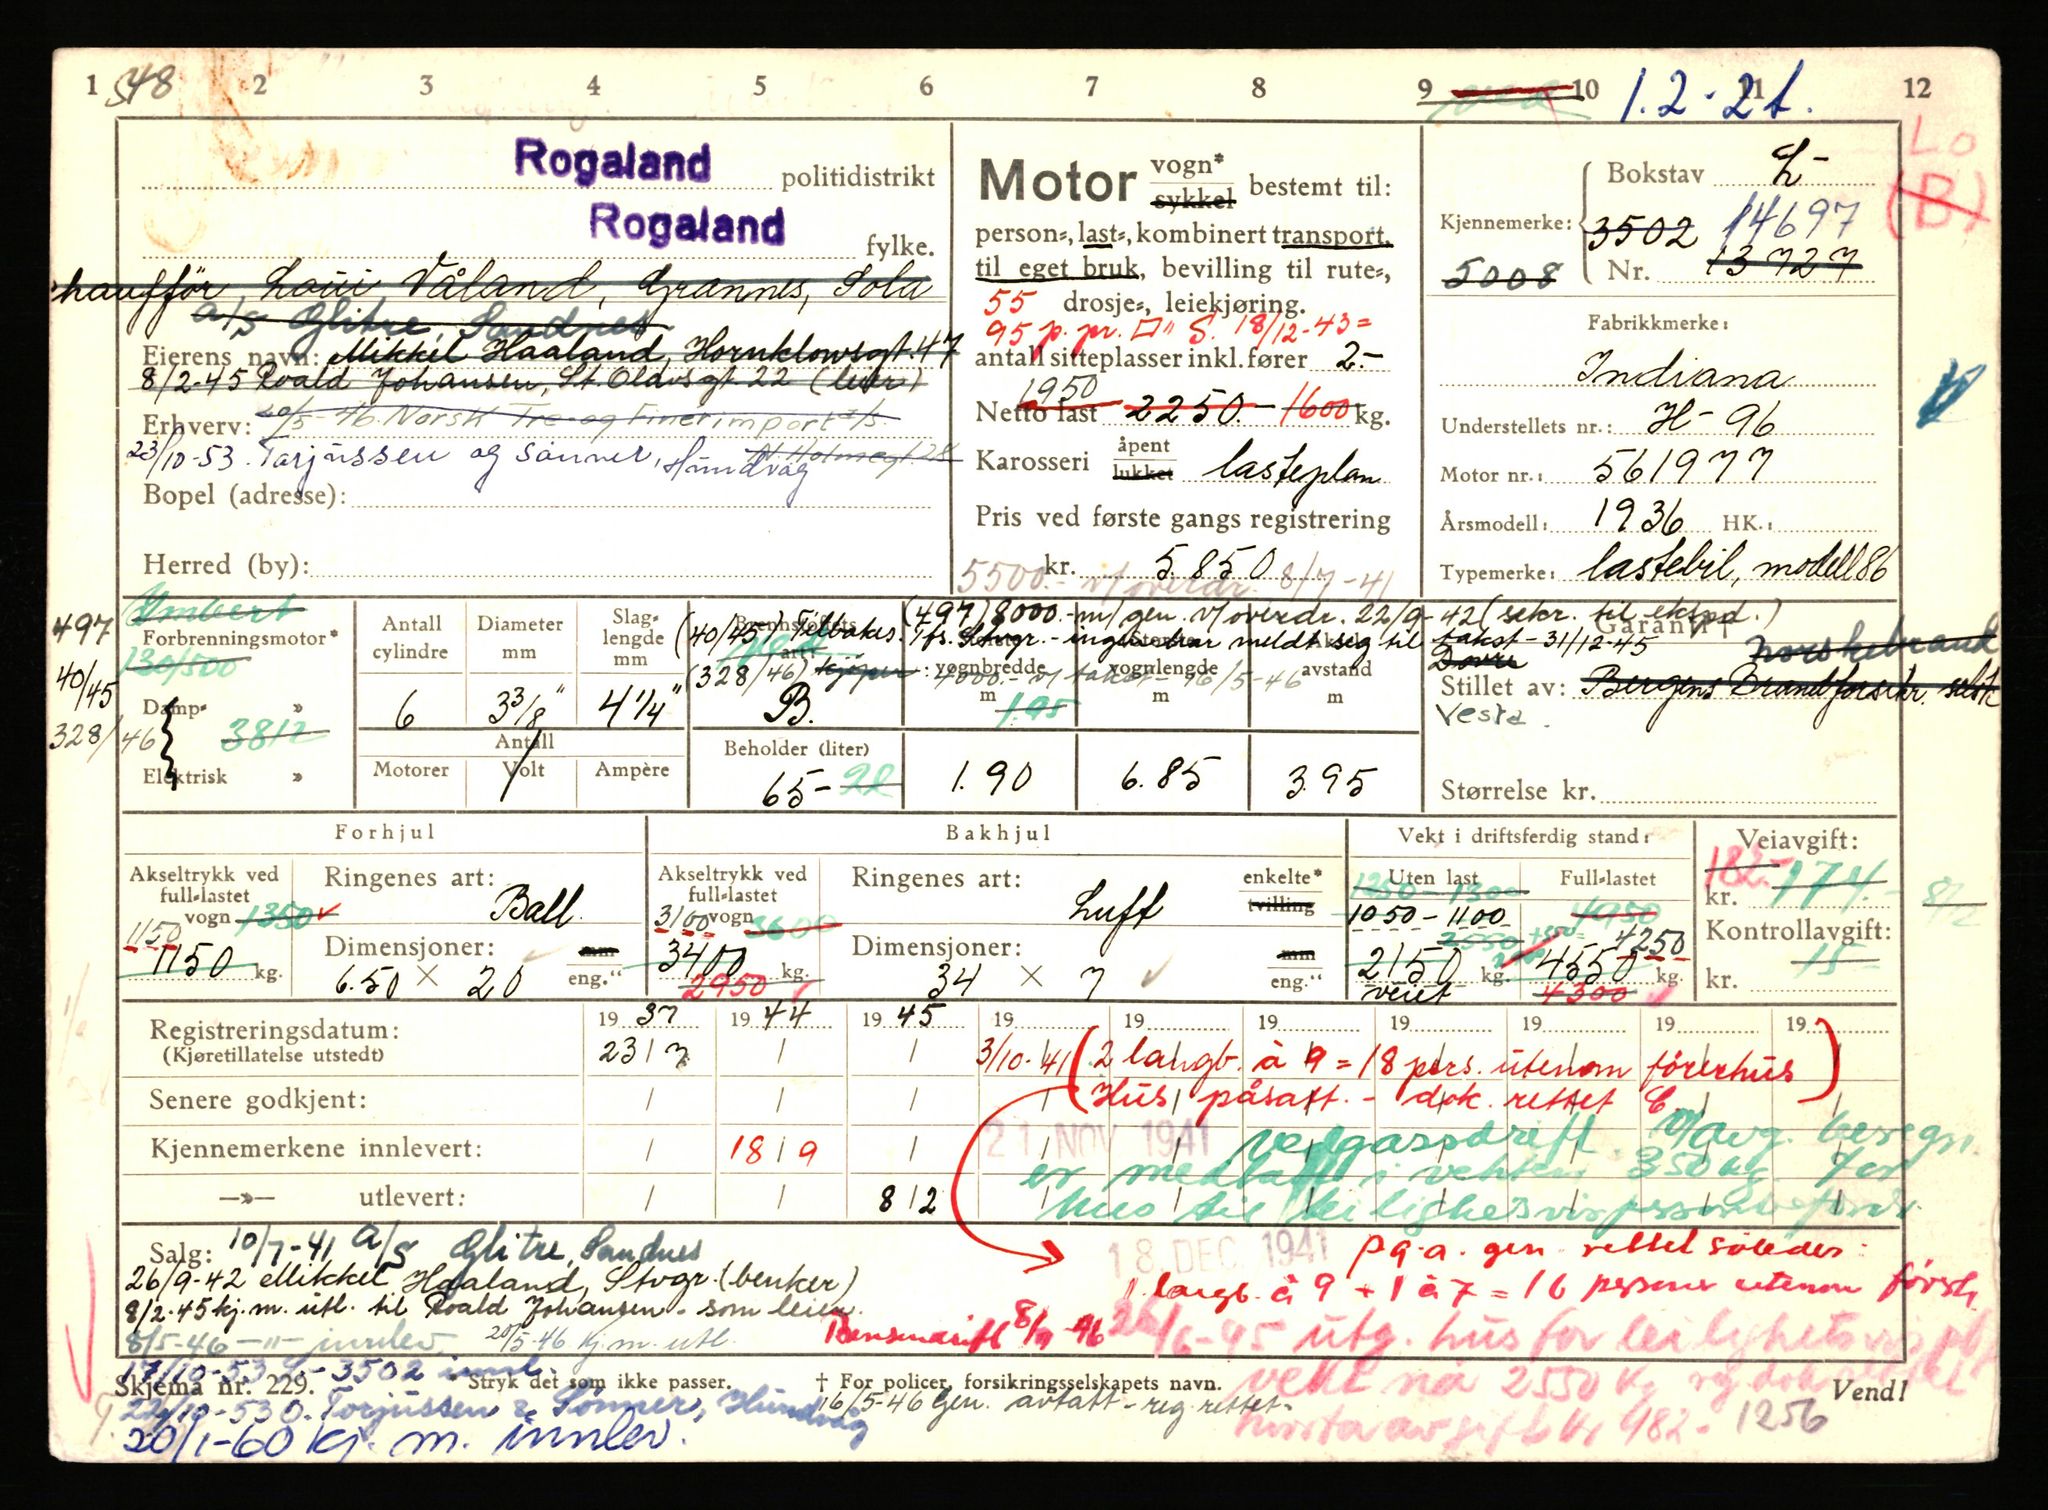 1 548 2 3 4 5 6 7 8 9 10 11 12
1.2-21.
Rogaland politidistrikt
Rogaland fylke.
Våland, Grannes, Sola
A/S Glitre, Sandnes
Eierens navn: Mikkel Haaland, Hornklowsgt. 47
8/2-45 Roald Johansen, St. Olavsgt. 22 (leier)
Erhverv: 20/5-46 Norsk Tre- og Finerimport A/S
23/10-53. Torjussen og sønner, Hundvåg
Bopel (adresse):
Herred (by):
Motor vogn* sykkel bestemt til:
person-, last-, kombinert transport,
til eget bruk, bevilling til rute-,
55 drosje-, leiekjøring.
95 p. pr. □" S. 18/12-43=
antall sitteplasser inkl. fører 2.-
1950
Netto last 2250.- 1600 kg.
Karosseri åpent lukket lasteplan
Pris ved første gangs registrering
kr. 5.850
5500.- v/overdr. 8/7-41
Bokstav L-
Lo
(B)
Kjennemerke: 3502 14697
5008 Nr. 13727
Fabrikkmerke:
Indiana
Understellets nr.: H-96
Motor nr.: 561977
Årsmodell: 1936 HK.:
Typemerke: lastebil, modell 86
497
40/45
328/46
Forbrenningsmotor*
130/500
Damp- »
3812
Elektrisk »
Antall cylindre
6
Diameter mm
3 3/8"
Slaglengde mm
4 1/4"
Antall
Motorer Volt Ampère
(497) 8000.- m/gen. v/overdr. 22/9-42 (sekr. til eksped.)
(40/45) Tilbakes. Stvgr. - ingen har meldt sig til takst - 31/12-45
(328/46) 4000.- v/takst - 16/5-46
Brennstoffets art:
B.
Beholder (liter)
65-
vognbredde m
1.95
1.90
vognlengde m
6.85
avstand m
3.95
Garanti †
Dovre Norskebrand
Stillet av: Bergens Brandforsikr. selsk
Vesta.
Størrelse kr.
Forhjul
Akseltrykk ved full-lastet vogn 1350
1150
1150 kg.
Ringenes art:
Ball.
Dimensjoner: mm
6.50 × 20 eng."
Bakhjul
Akseltrykk ved full-lastet vogn 3600
3100
3400 kg.
2950
Ringenes art: enkelte* tvilling
Luft
Dimensjoner: mm
34 × 7 eng."
Vekt i driftsferdig stand:
Uten last
1250-1300
1050-1100
2550
2150 kg.
veiet
Full-lastet
4950
4250
4550 kg.
4300
Veiavgift:
182.-
kr. 174.-
8/2
Kontrollavgift:
kr. 15-
Registreringsdatum: 19 37 19 44 19 45 19 19 19 19 19 19 19
(Kjøretillatelse utstedt) 23 / 7
3/10-41 (2 langb. à 9 = 18 pers. utenom förerhus)
Senere godkjent:
(Hus påsatt. - dok. rettet
Kjennemerkene innlevert: 18 / 9
21 NOV. 1941 vedgassdrift v/avg. beregn.
er medtatt i vekten 350 kg for
-»- utlevert: 8 / 2
hus til leilighetsvis
Salg: 10/7-41 A/S Glitre, Sandnes
26/9-42 Mikkel Haaland, Stvgr. (benker)
8/2-45 kj.m. utl. til Roald Johansen - som leier.
8/5-46 -"- innlev. 20/5-46 kj. m. utl.
18. DEC. 1941 rettet således:
langb. à 9 + 1 à 7 = 16 personer utenom
Bensindrift 8/9 46
26/6-45 utg. hus for leilighetsvis
vekt nå 2550 kg
982.- 1256
17/10-53 L-3502 innl.
Skjema nr. 229. * Stryk det som ikke passer. † For policer, forsikringsselskapets navn. Vend!
16/5-46 Gen. avtatt - reg. rettet-
22/10-53 O. Torjussen & Sønner, Hundvåg
20/1-60 kj. m. innlev.